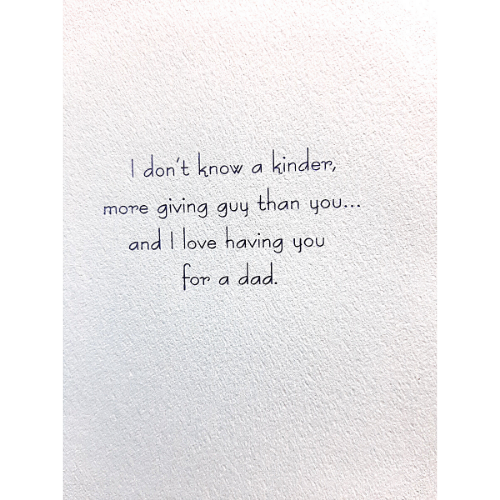 I don't know a kinder,
more giving guy than you...
and I love having you
for a dad.